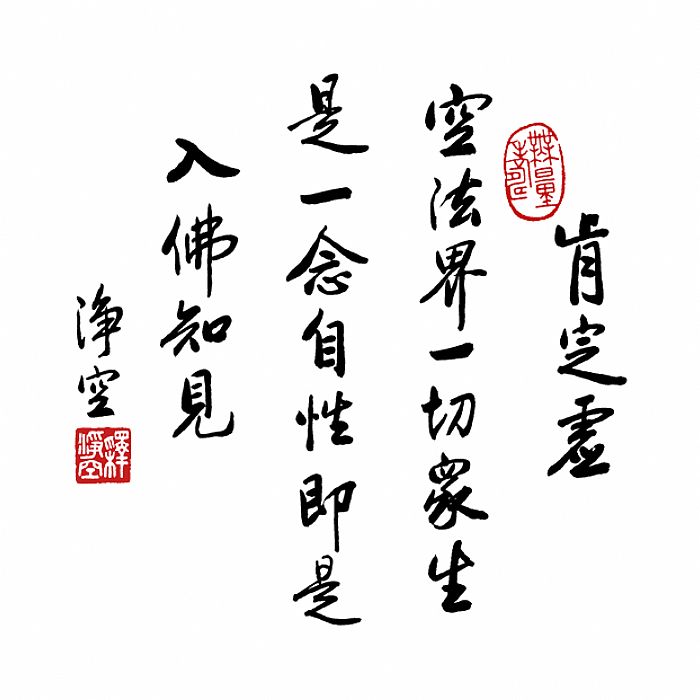 肯定虛
空法界一切眾生
是一念自性即是
入佛知見
淨空
無量壽
釋淨空